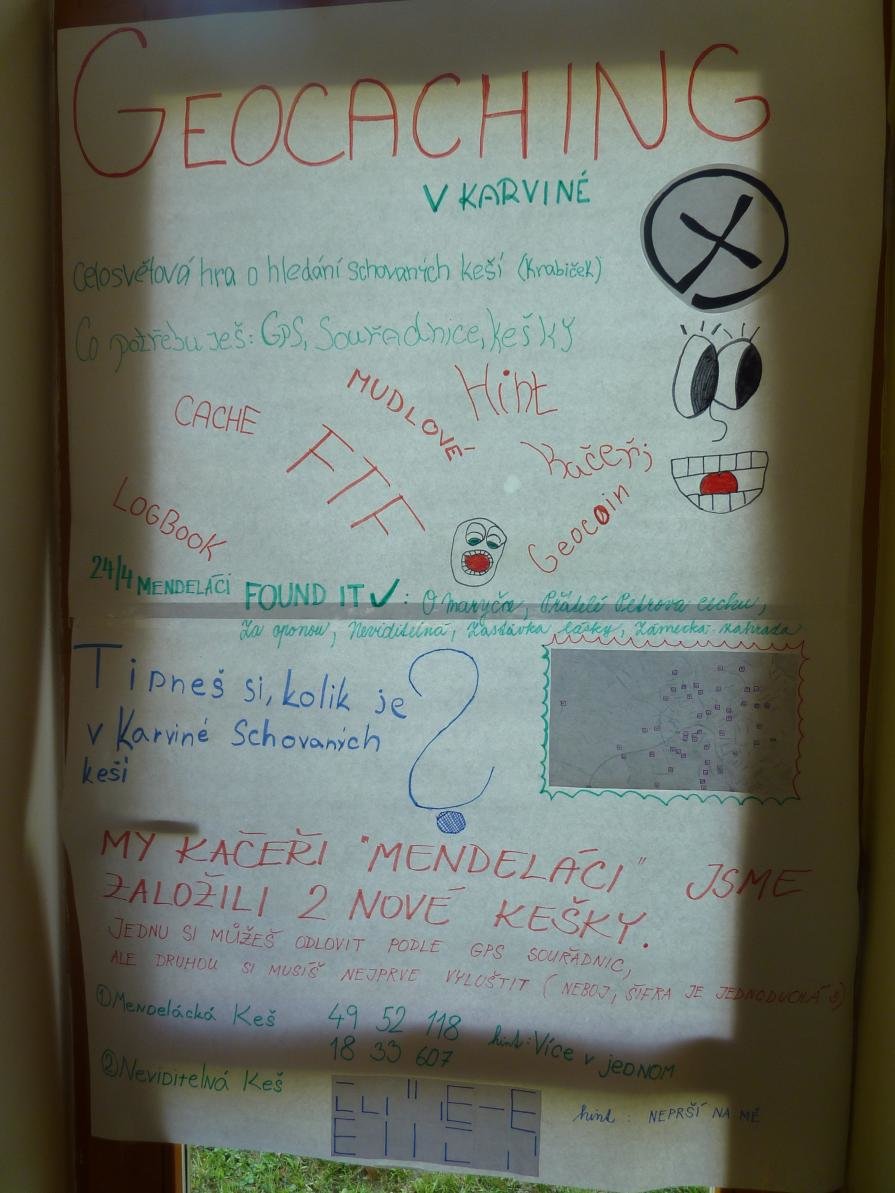 GEOCACHING
V KARVINÉ
Celosvětová hra o hledání schovaných keší (krabiček)
Co potřebuješ: GPS, Souřadnice, kešky
CACHE
MUDLOVÉ
Hint
FTF
Kačeři
LOGBOOK
Geocoin
24/4 MENDELÁCI FOUND IT ✓: O maryčce, Přátelé Petrova cechu,
Za oponou, Neviditelná, Zastávka lásky, Zámecká zahrada
Tipneš si, kolik je
v Karviné Schovaných
keší
?
MY KAČEŘI "MENDELÁCI" JSME
ZALOŽILI 2 NOVÉ KEŠKY.
JEDNU SI MŮŽEŠ ODLOVIT PODLE GPS SOUŘADNIC,
ALE DRUHOU SI MUSÍŠ NEJPRVE VYLUŠTIT (NEBOJ, ŠIFRA JE JEDNODUCHÁ
① Mendelácká Keš 49 52 118 hint: Více v jednom
18 33 607
② Neviditelná Keš hint: NEPRŠÍ NA MĚ